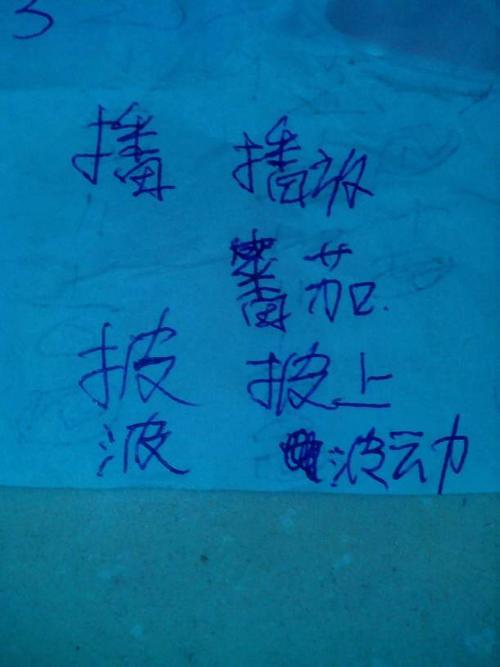 3
播 播放
番茄
披 披上
波 波动